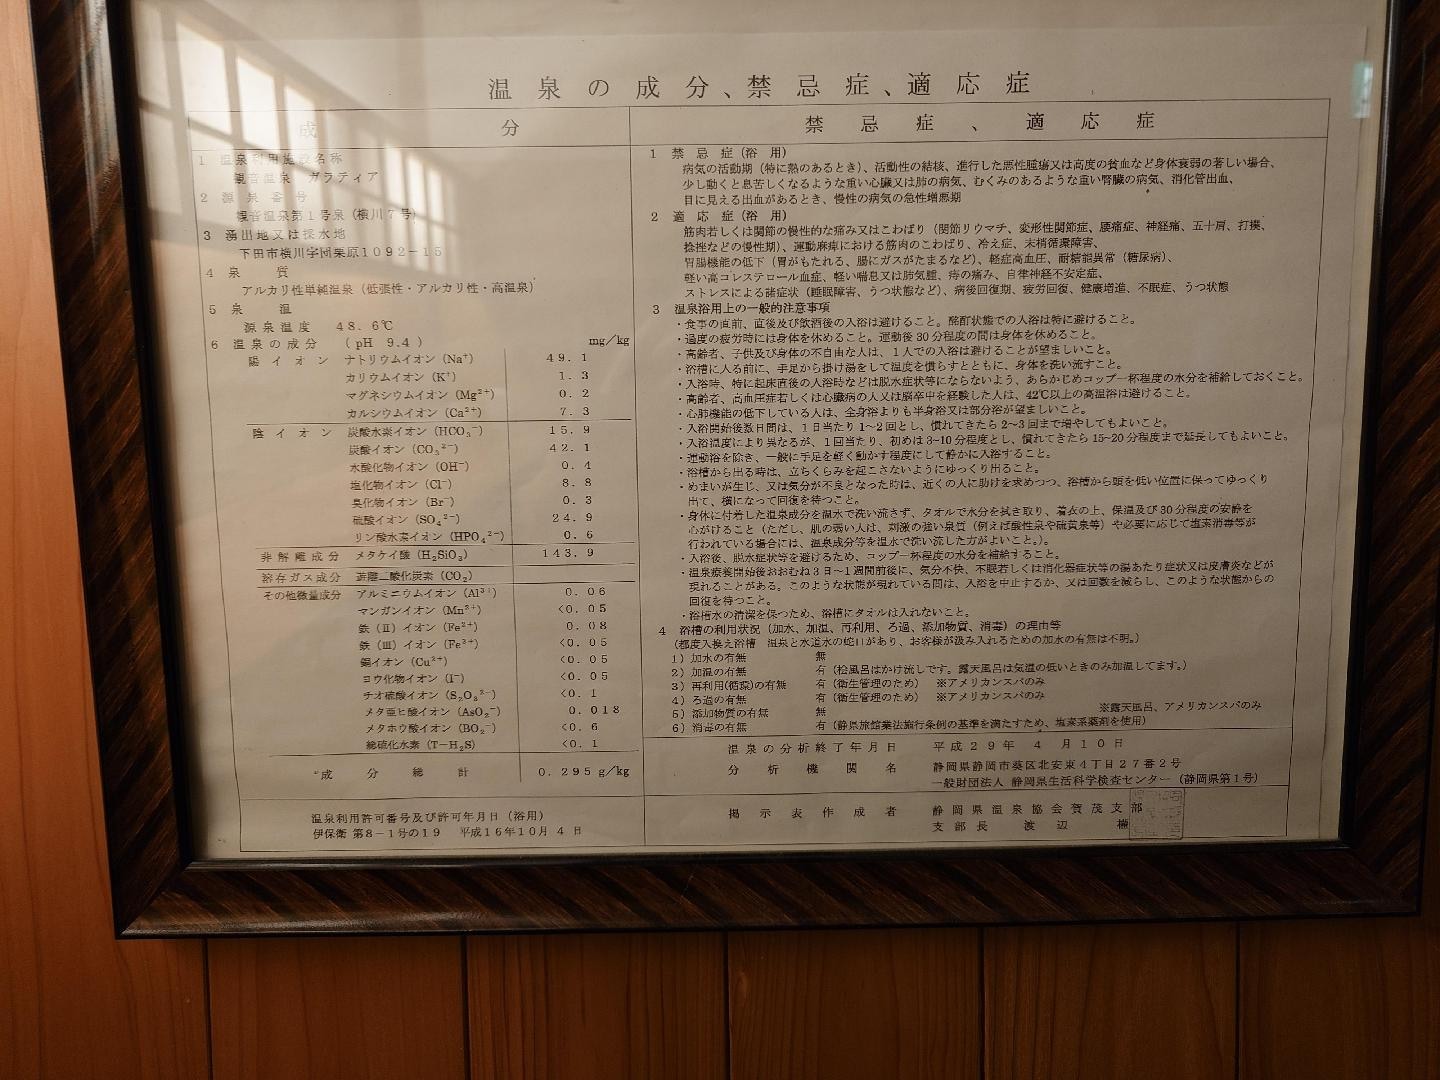 温泉の成分、禁忌症、適応症
成分
1 温泉利用施設名称
観音温泉 ガラティア
2 源泉番号
観音温泉第1号泉(横川7号)
3 湧出地又は採水地
下田市横川字団栗原1092-15
4 泉質
アルカリ性単純温泉(低張性・アルカリ性・高温泉)
5 泉温
源泉温度 48.6℃
6 温泉の成分 (pH 9.4) mg/kg
陽イオン ナトリウムイオン(Na⁺) 49.1
カリウムイオン(K⁺) 1.3
マグネシウムイオン(Mg²⁺) 0.2
カルシウムイオン(Ca²⁺) 7.3
陰イオン 炭酸水素イオン(HCO₃⁻) 15.9
炭酸イオン(CO₃²⁻) 42.1
水酸化物イオン(OH⁻) 0.4
塩化物イオン(Cl⁻) 8.8
臭化物イオン(Br⁻) 0.3
硫酸イオン(SO₄²⁻) 24.9
リン酸水素イオン(HPO₄²⁻) 0.6
非解離成分 メタケイ酸(H₂SiO₃) 143.9
溶存ガス成分 遊離二酸化炭素(CO₂)
その他微量成分 アルミニウムイオン(Al³⁺) 0.06
マンガンイオン(Mn²⁺) <0.05
鉄(Ⅱ)イオン(Fe²⁺) 0.08
鉄(Ⅲ)イオン(Fe³⁺) <0.05
銅イオン(Cu²⁺) <0.05
ヨウ化物イオン(I⁻) <0.05
チオ硫酸イオン(S₂O₃²⁻) <0.1
メタ亜ヒ酸イオン(AsO₂⁻) 0.018
メタホウ酸イオン(BO₂⁻) <0.6
総硫化水素(T-H₂S) <0.1
成分総計 0.295g/kg
温泉利用許可番号及び許可年月日(浴用)
伊保衛 第8-1号の19 平成16年10月4日
禁忌症、適応症
1 禁忌症(浴用)
病気の活動期(特に熱のあるとき)、活動性の結核、進行した悪性腫瘍又は高度の貧血など身体衰弱の著しい場合、
少し動くと息苦しくなるような重い心臓又は肺の病気、むくみのあるような重い腎臓の病気、消化管出血、
目に見える出血があるとき、慢性の病気の急性増悪期
2 適応症(浴用)
筋肉若しくは関節の慢性的な痛み又はこわばり(関節リウマチ、変形性関節症、腰痛症、神経痛、五十肩、打撲、
捻挫などの慢性期)、運動麻痺における筋肉のこわばり、冷え症、末梢循環障害、
胃腸機能の低下(胃がもたれる、腸にガスがたまるなど)、軽症高血圧、耐糖能異常(糖尿病)、
軽い高コレステロール血症、軽い喘息又は肺気腫、痔の痛み、自律神経不安定症、
ストレスによる諸症状(睡眠障害、うつ状態など)、病後回復期、疲労回復、健康増進、不眠症、うつ状態
3 温泉浴用上の一般的注意事項
・食事の直前、直後及び飲酒後の入浴は避けること。酩酊状態での入浴は特に避けること。
・過度の疲労時には身体を休めること。運動後30分程度の間は身体を休めること。
・高齢者、子供及び身体の不自由な人は、1人での入浴は避けることが望ましいこと。
・浴槽に入る前に、手足から掛け湯をして温度を慣らすとともに、身体を洗い流すこと。
・入浴時、特に起床直後の入浴時などは脱水症状等にならないよう、あらかじめコップ一杯程度の水分を補給しておくこと。
・高齢者、高血圧症若しくは心臓病の人又は脳卒中を経験した人は、42℃以上の高温浴は避けること。
・心肺機能の低下している人は、全身浴よりも半身浴又は部分浴が望ましいこと。
・入浴開始後数日間は、1日当たり1~2回とし、慣れてきたら2~3回まで増やしてもよいこと。
・入浴温度により異なるが、1回当たり、初めは3~10分程度とし、慣れてきたら15~20分程度まで延長してもよいこと。
・運動浴を除き、一般に手足を軽く動かす程度にして静かに入浴すること。
・浴槽から出る時は、立ちくらみを起こさないようにゆっくり出ること。
・めまいが生じ、又は気分が不良となった時は、近くの人に助けを求めつつ、浴槽から頭を低い位置に保ってゆっくり
出て、横になって回復を待つこと。
・身体に付着した温泉成分を温水で洗い流さず、タオルで水分を拭き取り、着衣の上、保温及び30分程度の安静を
心がけること(ただし、肌の弱い人は、刺激の強い泉質(例えば酸性泉や硫黄泉等)や必要に応じて塩素消毒等が
行われている場合には、温泉成分等を温水で洗い流した方がよいこと。)。
・入浴後、脱水症状等を避けるため、コップ一杯程度の水分を補給すること。
・温泉療養開始後おおむね3日~1週間前後に、気分不快、不眠若しくは消化器症状等の湯あたり症状又は皮膚炎などが
現れることがある。このような状態が現れている間は、入浴を中止するか、又は回数を減らし、このような状態からの
回復を待つこと。
・浴槽水の清潔を保つため、浴槽にタオルは入れないこと。
4 浴槽の利用状況(加水、加温、再利用、ろ過、添加物質、消毒)の理由等
(都度入換え浴槽 温泉と水道水の蛇口があり、お客様が汲み入れるための加水の有無は不明。)
1)加水の有無 無
2)加温の有無 有(桧風呂はかけ流しです。露天風呂は気温の低いときのみ加温してます。)
3)再利用(循環)の有無 有(衛生管理のため) ※アメリカンスパのみ
4)ろ過の有無 有(衛生管理のため) ※アメリカンスパのみ
5)添加物質の有無 無 ※露天風呂、アメリカンスパのみ
6)消毒の有無 有(静県旅館業法施行条例の基準を満たすため、塩素系薬剤を使用)
温泉の分析終了年月日 平成29年 4月10日
分析機関名 静岡県静岡市葵区北安東4丁目27番2号
一般財団法人 静岡県生活科学検査センター(静岡県第1号)
掲示表作成者 静岡県温泉協会賀茂支部
支部長 渡辺